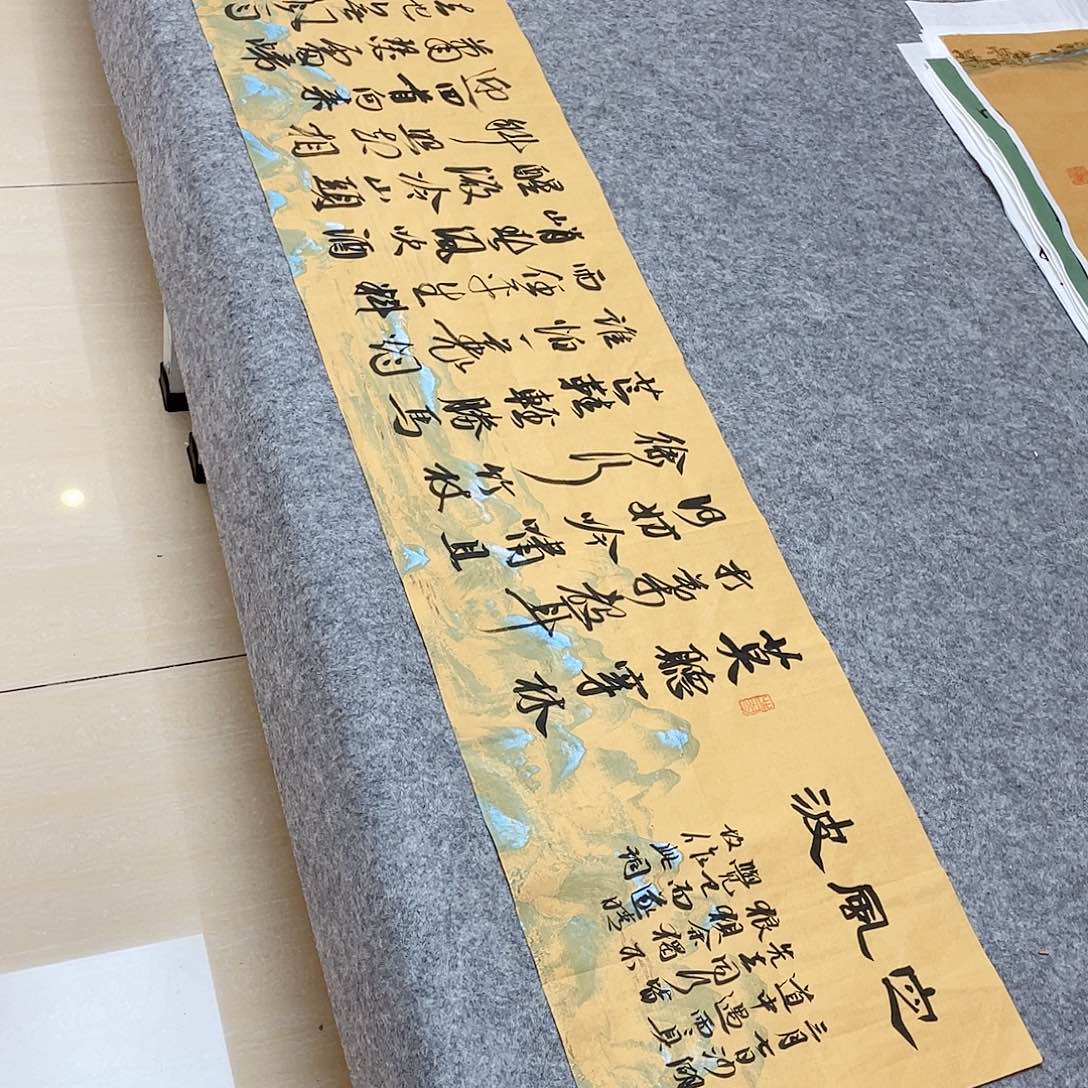 定風波
三月七日沙湖
道中遇雨具
先去同行皆
狼狽余獨不
覺已而遂晴
故作此詞
莫聽穿林
打葉聲
何妨吟嘯且
徐行竹杖
芒鞋輕勝馬
誰怕一蓑烟
雨任平生料
峭春風吹酒
醒微冷山頭
斜照却相
迎回首向來
蕭瑟處歸
去也無風雨